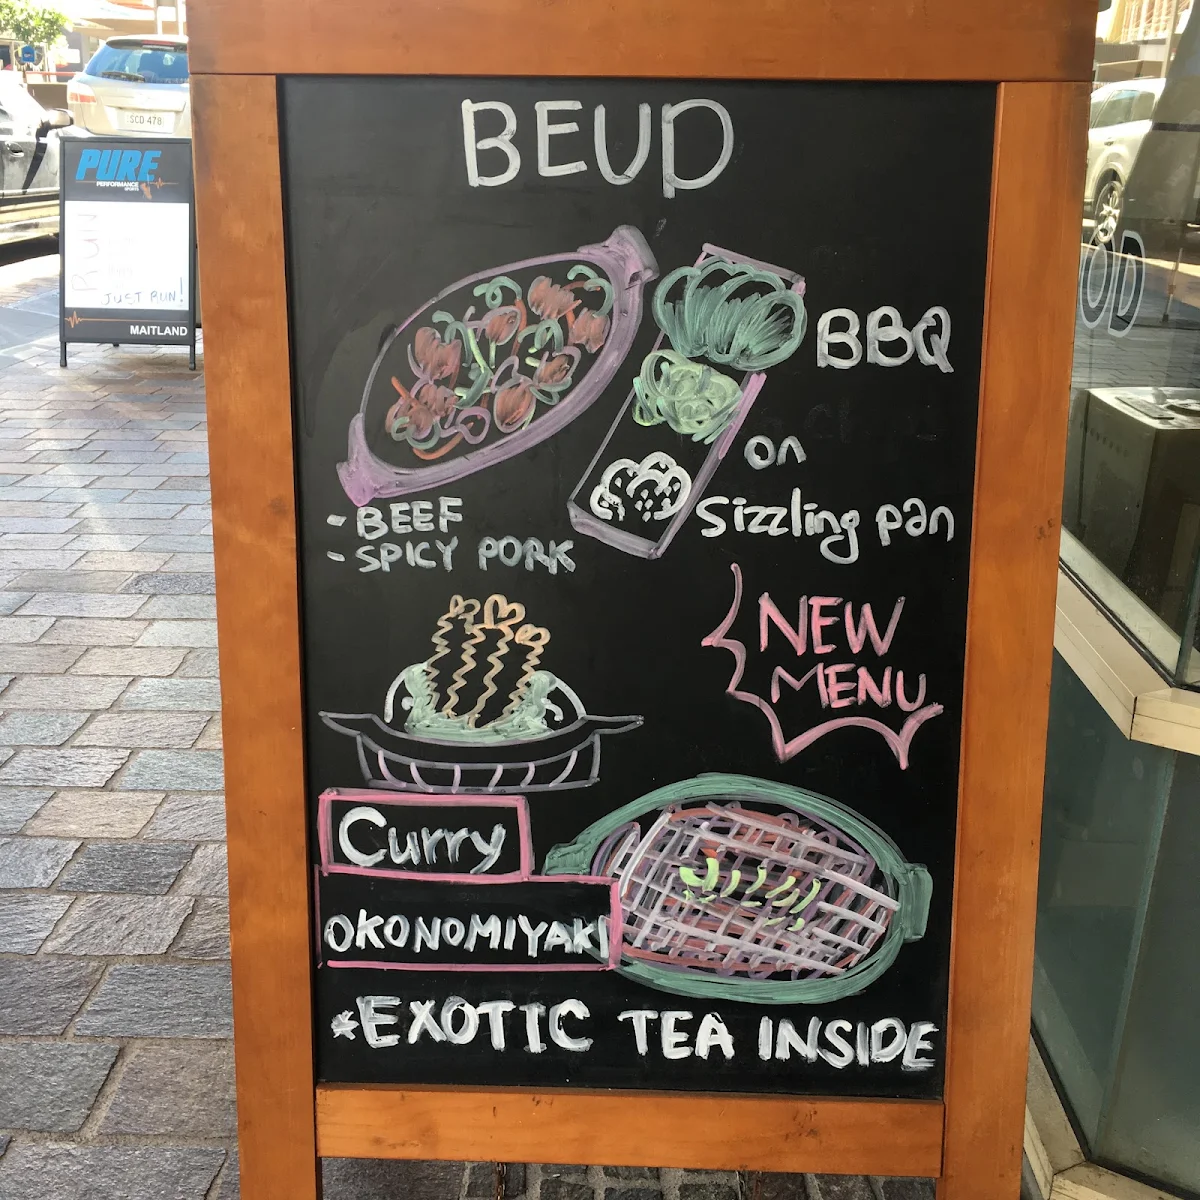 BEUD
BBQ
on
Sizzling pan
- BEEF
- SPICY PORK
NEW
MENU
Curry
OKONOMIYAKI
*EXOTIC TEA INSIDE
SCD 478
PURE
PERFORMANCE
RUN
JUST RUN!
MAITLAND
UD